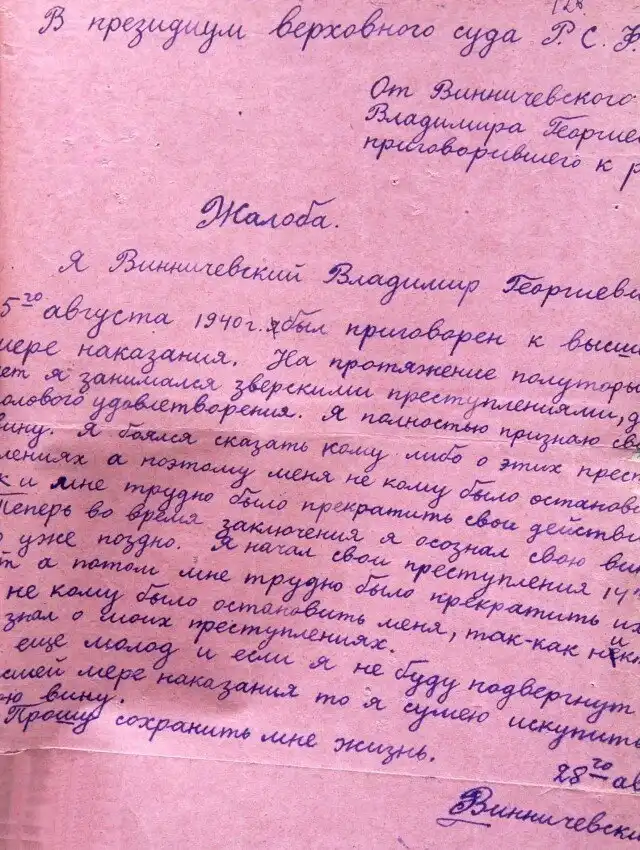 128
В президиум верховного суда Р. С. Ф
От Винничевского
Владимира Георгие
приговорившего к р
Жалоба.
Я Винничевский Владимир Георгиеви
5го августа 1940г. я был приговорен к высш
мере наказания. На протяжение полуторы
ет я занимался зверскими преступлениями, д
олового удовлетворения. Я полностью признаю св
вину. Я боялся сказать кому либо о этих прест
лениях а поэтому меня не кому было останови
к и мне трудно было прекратить свои действи
Теперь во время заключения я осознал свою вин
о уже поздно. Я начал свои преступления 14
т а потом мне трудно было прекратить их
не кому было остановить меня, так-как ник
знал о моих преступлениях.
еще молод и если я не буду подвергнут
сшей мере наказания то я сумею искупить
ою вину.
Прошу сохранить мне жизнь.
28го ав
Винничевски